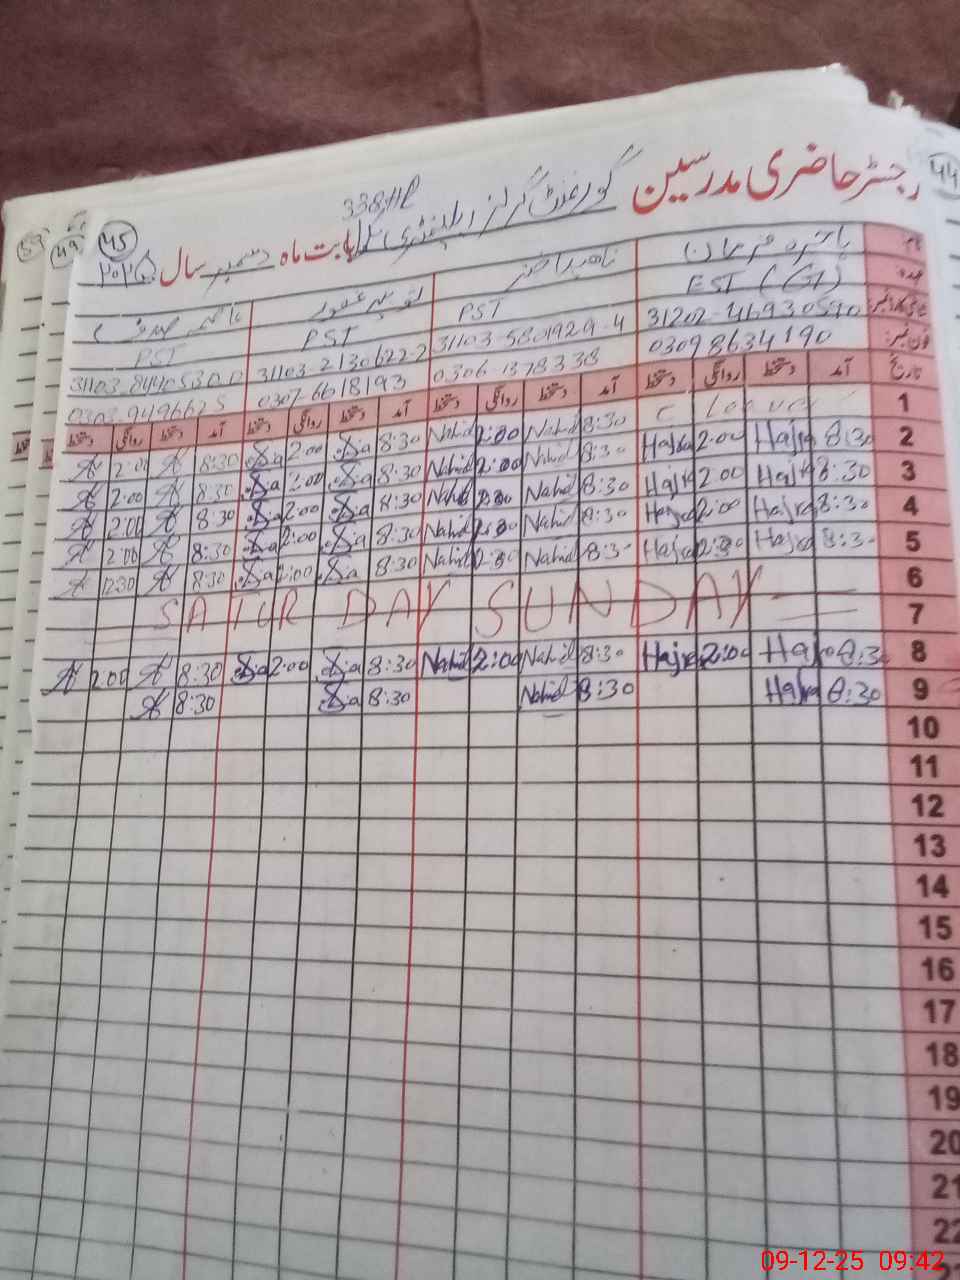 44
رجسٹر حاضری مدرسین گورنمنٹ گرلز
338/HR
45
بابت ماہ دسمبر سال ۲۰۲۵
53 49
نام
عہدہ EST PST PST PST
31202-4693059-0 31103-5801929-4 31103-2130622-2
فون نمبر 03098634190 0306-1378338 0307-6618193 0303-9496625
تاریخ آمد دستخط روانگی دستخط آمد دستخط روانگی دستخط آمد دستخط روانگی دستخط آمد دستخط روانگی دستخط
1 C Leave 8:30 Nahid 2:00 Nahid 8:30 Sia 2:00 Sia 8:30 A 2:00 A
2 8:30 Hajra 2:00 Hajra 8:30 Nahid 2:00 Nahid 8:30 Sia 2:00 Sia 8:30 A 2:00 A
3 8:30 Hajra 2:00 Hajra 8:30 Nahid 2:00 Nahid 8:30 Sia 2:00 Sia 8:30 A 2:00 A
4 8:30 Hajra 2:00 Hajra 8:30 Nahid Nahid 8:30 Sia 2:00 Sia 8:30 A 2:00 A
5 8:30 Hajra Hajra 8:30 Nahid Nahid 8:30 Sia 2:00 Sia 8:30 A 12:30 A
6
SATURDAY SUNDAY
7
8 8:30 Hajra 2:00 Hajra 8:30 Nahid 2:00 Nahid 8:30 Sia 2:00 Sia 8:30 A 2:00 A
9 8:30 Hajra 8:30 Nahid 8:30 Sia 8:30 A
10
11
12
13
14
15
16
17
18
19
20
21
22
09-12-25 09:42